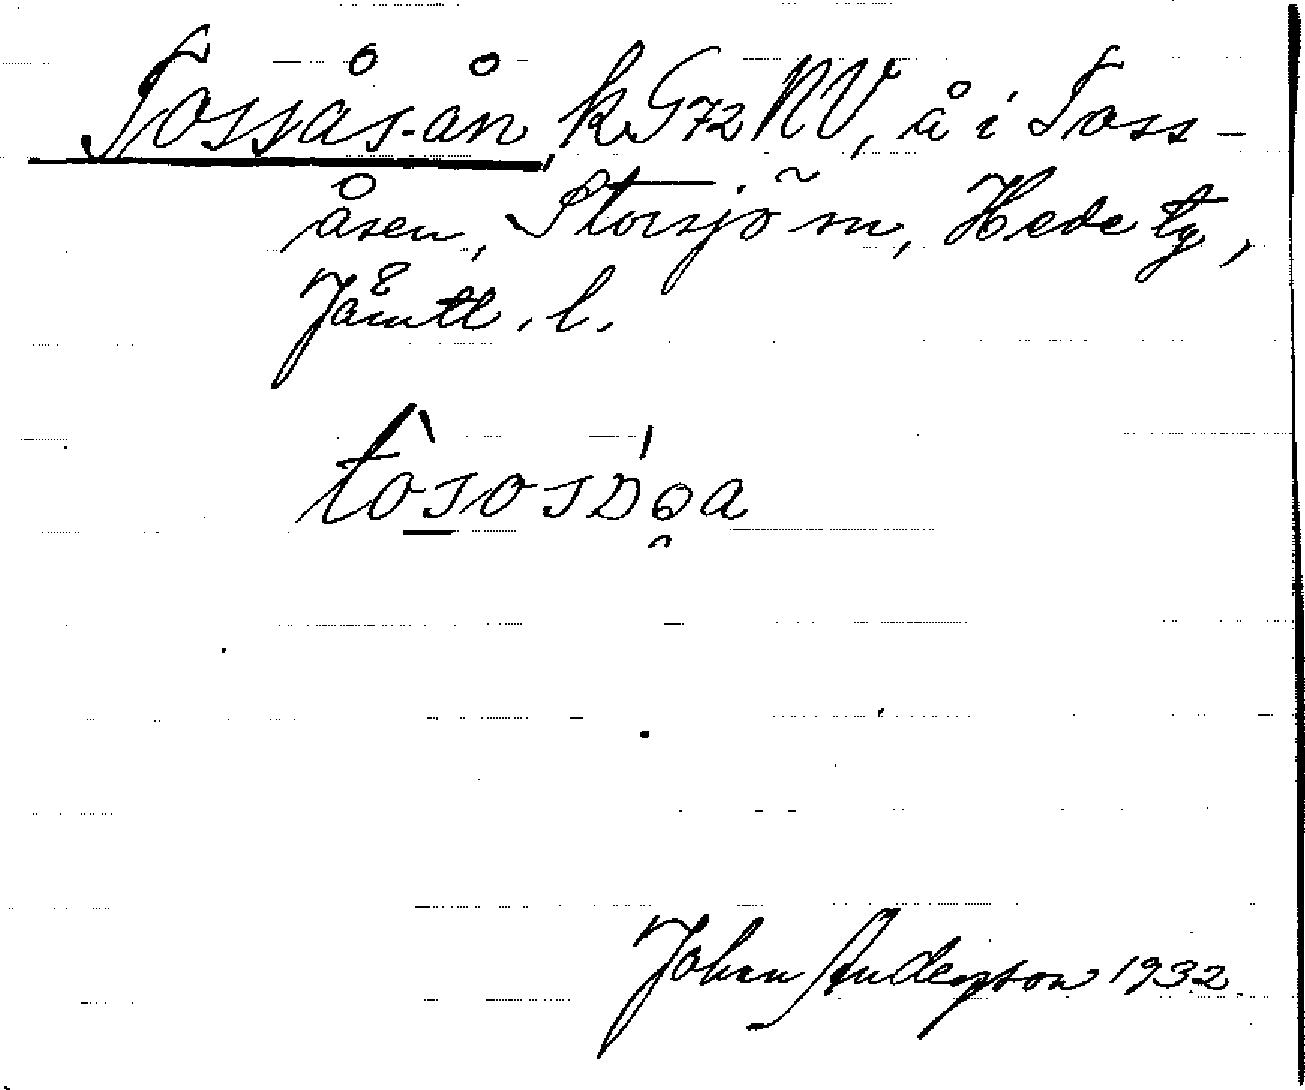 Tossås-ån, kG72RV, å i Toss-
åsen, Storsjö sn, Hede tg,
Jämtl. l.
Johan Anderson 1932